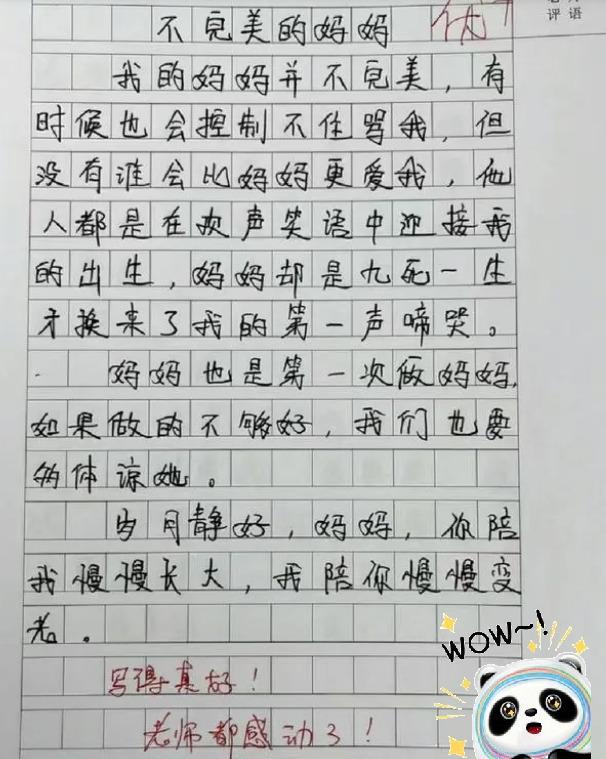 评语
不完美的妈妈 优
我的妈妈并不完美，有
时候也会控制不住骂我，但
没有谁会比妈妈更爱我，他
人都是在欢声笑语中迎接我
的出生，妈妈却是九死一生
才换来了我的第一声啼哭。
妈妈也是第一次做妈妈，
如果做的不够好，我们也要
多体谅她。
岁月静好，妈妈，你陪
我慢慢长大，我陪你慢慢变
老。
WOW~!
写得真好！
老师都感动了！